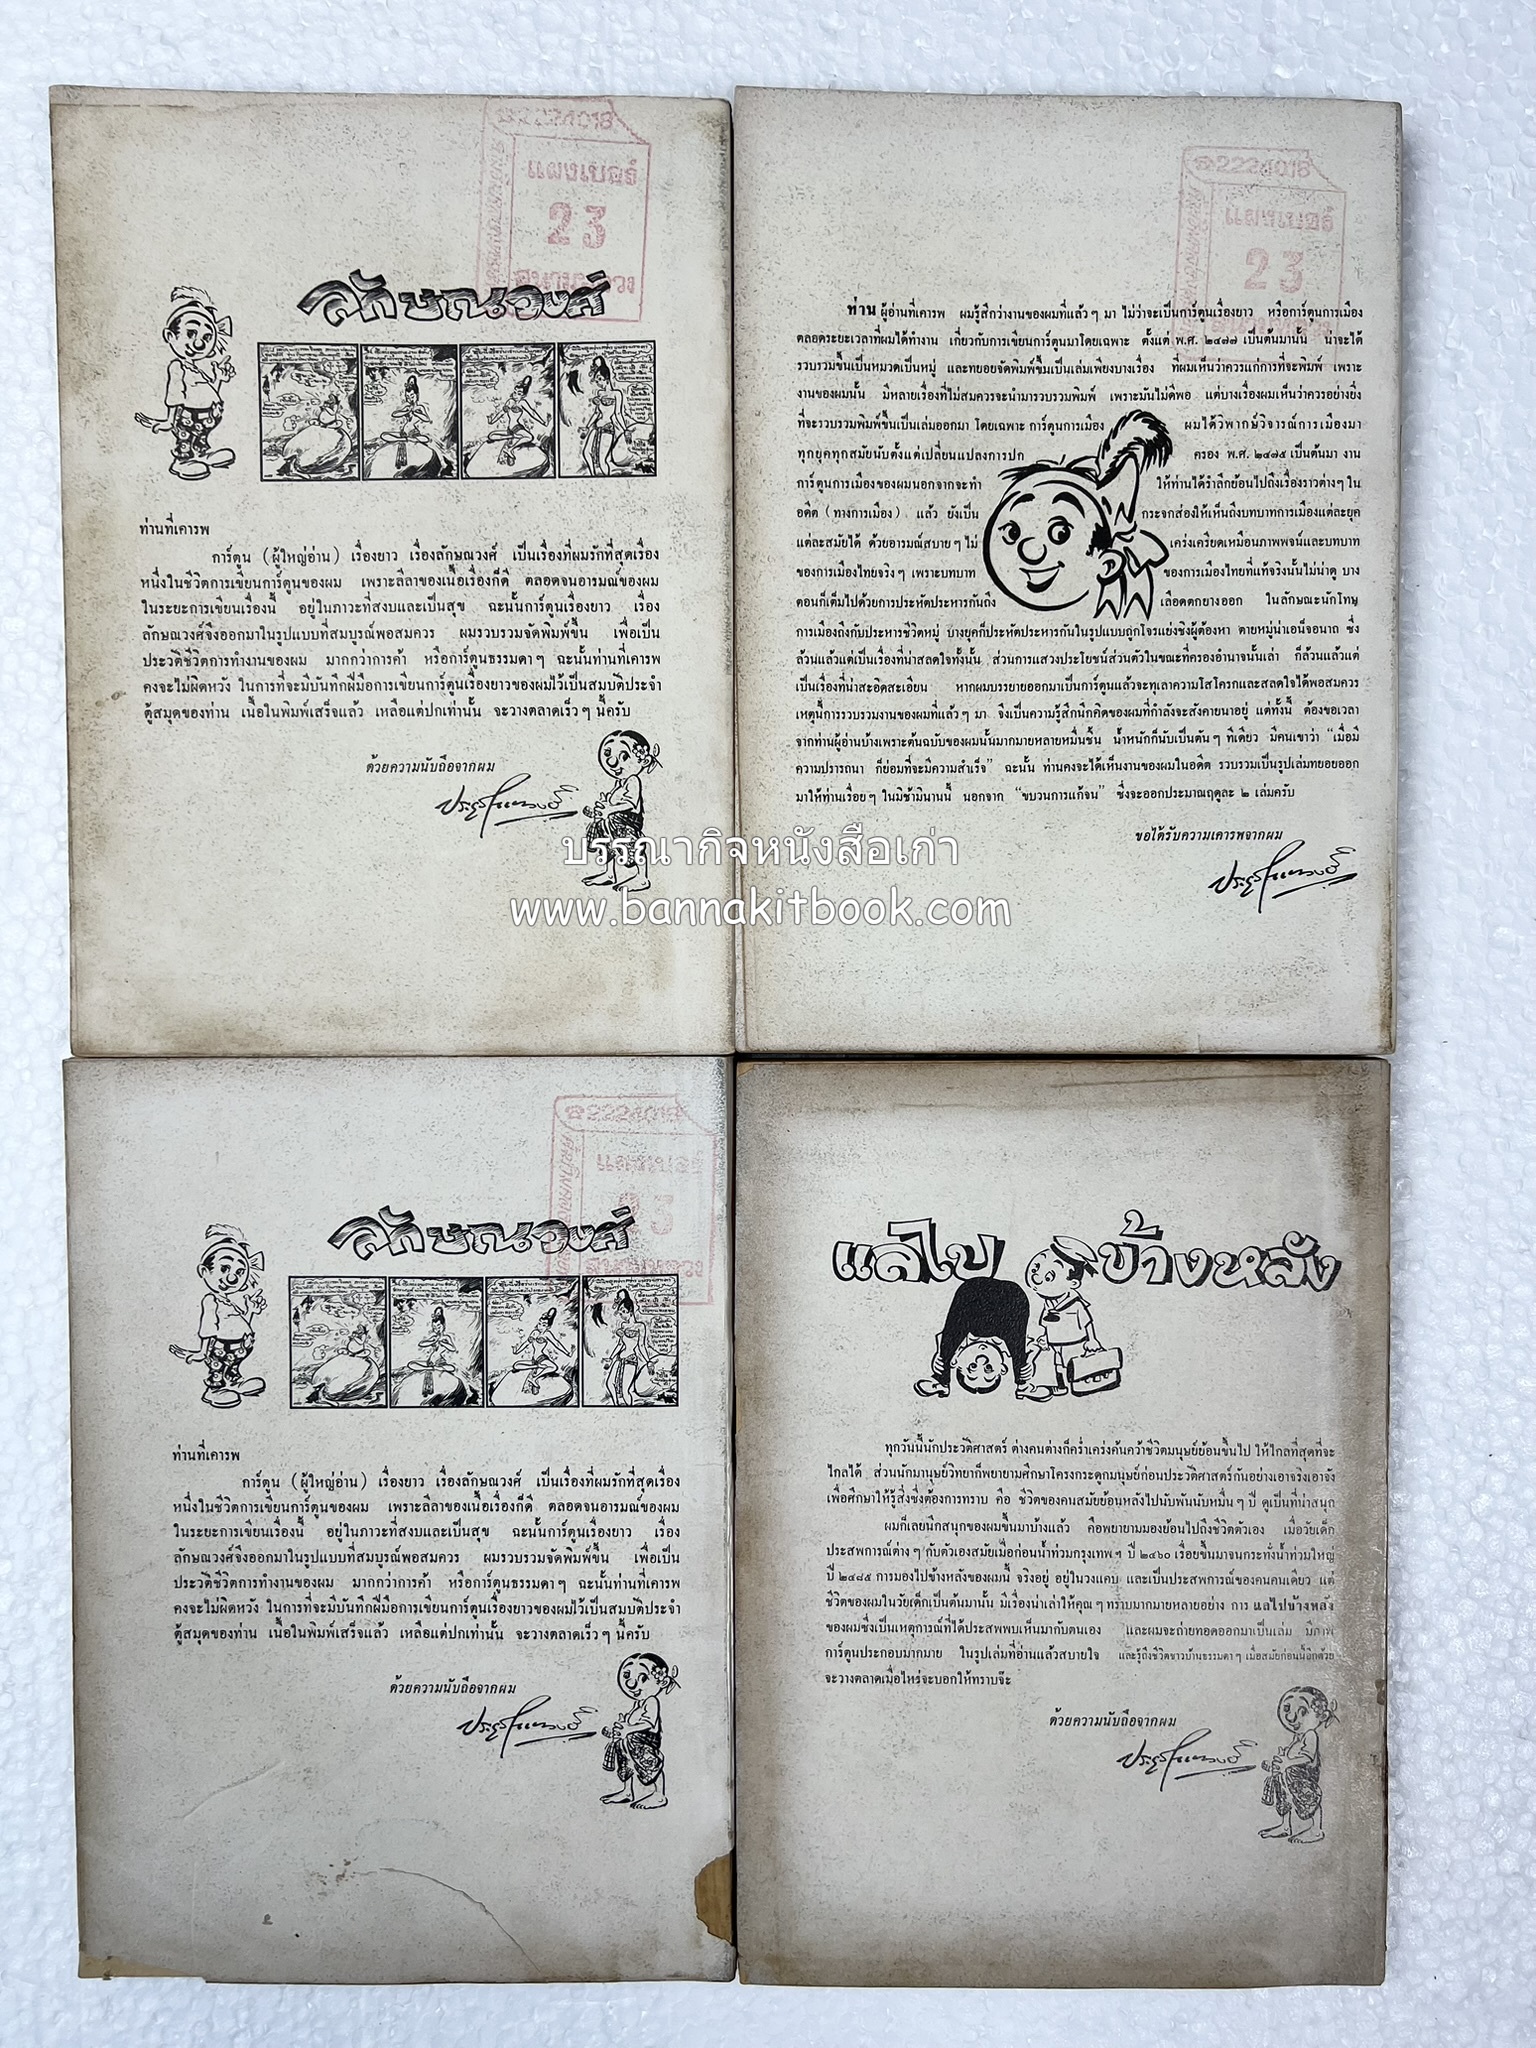 แผงเบอร์
23
สนามหลวง
ลักษณวงศ์
ท่านที่เคารพ
การ์ตูน (ผู้ใหญ่อ่าน) เรื่องยาว เรื่องลักษณวงศ์ เป็นเรื่องที่ผมรักที่สุดเรื่อง
หนึ่งในชีวิตการเขียนการ์ตูนของผม เพราะลีลาของเนื้อเรื่องก็ดี ตลอดจนอารมณ์ของผม
ในระยะการเขียนเรื่องนี้ อยู่ในภาวะที่สงบและเป็นสุข ฉะนั้นการ์ตูนเรื่องยาว เรื่อง
ลักษณวงศ์จึงออกมาในรูปแบบที่สมบูรณ์พอสมควร ผมรวบรวมจัดพิมพ์ขึ้น เพื่อเป็น
ประวัติชีวิตการทำงานของผม มากกว่าการค้า หรือการ์ตูนธรรมดาๆ ฉะนั้นท่านที่เคารพ
คงจะไม่ผิดหวัง ในการที่จะมีบันทึกฝีมือการเขียนการ์ตูนเรื่องยาวของผมไว้เป็นสมบัติประจำ
ตู้สมุดของท่าน เนื้อในพิมพ์เสร็จแล้ว เหลือแต่ปกเท่านั้น จะวางตลาดเร็วๆ นี้ครับ
ด้วยความนับถือจากผม
2221018
แผงเบอร์
23
ท่าน ผู้อ่านที่เคารพ ผมรู้สึกว่างานของผมที่แล้วๆ มา ไม่ว่าจะเป็นการ์ตูนเรื่องยาว หรือการ์ตูนการเมือง
ตลอดระยะเวลาที่ผมได้ทำงาน เกี่ยวกับการเขียนการ์ตูนมาโดยเฉพาะ ตั้งแต่ พ.ศ. ๒๔๗๗ เป็นต้นมานั้น น่าจะได้
รวบรวมขึ้นเป็นหมวดเป็นหมู่ และทยอยจัดพิมพ์ขึ้นเป็นเล่มเพียงบางเรื่อง ที่ผมเห็นว่าควรแก่การที่จะพิมพ์ เพราะ
งานของผมนั้น มีหลายเรื่องที่ไม่สมควรจะนำมารวบรวมพิมพ์ เพราะมันไม่ดีพอ แต่บางเรื่องผมเห็นว่าควรอย่างยิ่ง
ที่จะรวบรวมพิมพ์ขึ้นเป็นเล่มออกมา โดยเฉพาะ การ์ตูนการเมือง ผมได้วิพากษ์วิจารณ์การเมืองมา
ทุกยุคทุกสมัยนับตั้งแต่เปลี่ยนแปลงการปก ครอง พ.ศ. ๒๔๗๕ เป็นต้นมา งาน
การ์ตูนการเมืองของผมนอกจากจะทำ ให้ท่านได้รำลึกย้อนไปถึงเรื่องราวต่างๆ ใน
อดีต (ทางการเมือง) แล้ว ยังเป็น กระจกส่องให้เห็นถึงบทบาทการเมืองแต่ละยุค
แต่ละสมัยได้ ด้วยอารมณ์สบายๆ ไม่ เคร่งเครียดเหมือนภาพพจน์และบทบาท
ของการเมืองไทยจริงๆ เพราะบทบาท ของการเมืองไทยที่แท้จริงนั้นไม่น่าดู บาง
ตอนก็เต็มไปด้วยการประหัตประหารกันถึง เลือดตกยางออก ในลักษณะนักโทษ
การเมืองถึงกับประหารชีวิตหมู่ บางยุคก็ประหัตประหารกันในรูปแบบถูกโจรแย่งชิงผู้ต้องหา ตายหมู่น่าเอน็จอนาถ ซึ่ง
ล้วนแล้วแต่เป็นเรื่องที่น่าสลดใจทั้งนั้น ส่วนการแสวงประโยชน์ส่วนตัวในขณะที่ครองอำนาจนั้นเล่า ก็ล้วนแล้วแต่
เป็นเรื่องที่น่าสะอิดสะเอียน หากผมบรรยายออกมาเป็นการ์ตูนแล้วจะทุเลาความโสโครกและสลดใจได้พอสมควร
เหตุนี้การรวบรวมงานของผมที่แล้วๆ มา จึงเป็นความรู้สึกนึกคิดของผมที่กำลังจะสังคายนาอยู่ แต่ทั้งนี้ ต้องขอเวลา
จากท่านผู้อ่านบ้างเพราะต้นฉบับของผมนั้นมากมายหลายหมื่นชิ้น น้ำหนักก็นับเป็นตันๆ ทีเดียว มีคนเขาว่า "เมื่อมี
ความปรารถนา ก็ย่อมที่จะมีความสำเร็จ" ฉะนั้น ท่านคงจะได้เห็นงานของผมในอดีต รวบรวมเป็นรูปเล่มทยอยออก
มาให้ท่านเรื่อยๆ ในมิช้ามินานนี้ นอกจาก "ขบวนการแก้จน" ซึ่งจะออกประมาณฤดูละ ๒ เล่มครับ
ขอได้รับความเคารพจากผม
บรรณากิจหนังสือเก่า
www.bannakitbook.com
แผงเบอร์
23
ลักษณวงศ์
ท่านที่เคารพ
การ์ตูน (ผู้ใหญ่อ่าน) เรื่องยาว เรื่องลักษณวงศ์ เป็นเรื่องที่ผมรักที่สุดเรื่อง
หนึ่งในชีวิตการเขียนการ์ตูนของผม เพราะลีลาของเนื้อเรื่องก็ดี ตลอดจนอารมณ์ของผม
ในระยะการเขียนเรื่องนี้ อยู่ในภาวะที่สงบและเป็นสุข ฉะนั้นการ์ตูนเรื่องยาว เรื่อง
ลักษณวงศ์จึงออกมาในรูปแบบที่สมบูรณ์พอสมควร ผมรวบรวมจัดพิมพ์ขึ้น เพื่อเป็น
ประวัติชีวิตการทำงานของผม มากกว่าการค้า หรือการ์ตูนธรรมดาๆ ฉะนั้นท่านที่เคารพ
คงจะไม่ผิดหวัง ในการที่จะมีบันทึกฝีมือการเขียนการ์ตูนเรื่องยาวของผมไว้เป็นสมบัติประจำ
ตู้สมุดของท่าน เนื้อในพิมพ์เสร็จแล้ว เหลือแต่ปกเท่านั้น จะวางตลาดเร็วๆ นี้ครับ
ด้วยความนับถือจากผม
แลไปข้างหลัง
ทุกวันนี้นักประวัติศาสตร์ ต่างคนต่างก็คร่ำเคร่งค้นคว้าชีวิตมนุษย์ย้อนขึ้นไป ให้ไกลที่สุดที่จะ
ไกลได้ ส่วนนักมานุษย์วิทยาก็พยายามศึกษาโครงกระดูกมนุษย์ก่อนประวัติศาสตร์กันอย่างเอาจริงเอาจัง
เพื่อศึกษาให้รู้สิ่งซึ่งต้องการทราบ คือ ชีวิตของคนสมัยย้อนหลังไปนับพันนับหมื่นๆ ปี ดูเป็นที่น่าสนุก
ผมก็เลยนึกสนุกของผมขึ้นมาบ้างแล้ว คือพยายามมองย้อนไปถึงชีวิตตัวเอง เมื่อวัยเด็ก
ประสพการณ์ต่างๆ กับตัวเองสมัยเมื่อก่อนน้ำท่วมกรุงเทพฯ ปี ๒๔๖๐ เรื่อยขึ้นมาจนกระทั่งน้ำท่วมใหญ่
ปี ๒๔๘๕ การมองไปข้างหลังของผมนี้ จริงอยู่ อยู่ในวงแคบ และเป็นประสพการณ์ของคนคนเดียว แต่
ชีวิตของผมในวัยเด็กเป็นต้นมานั้น มีเรื่องน่าเล่าให้คุณๆ ทราบมากมายหลายอย่าง การ แลไปข้างหลัง
ของผมซึ่งเป็นเหตุการณ์ที่ได้ประสพพบเห็นมากับตนเอง และผมจะถ่ายทอดออกมาเป็นเล่ม มีภาพ
การ์ตูนประกอบมากมาย ในรูปเล่มที่อ่านแล้วสบายใจ และรู้ถึงชีวิตชาวบ้านธรรมดาๆ เมื่อสมัยก่อนนี้อีกด้วย
จะวางตลาดเมื่อไหร่จะบอกให้ทราบจ๊ะ
ด้วยความนับถือจากผม